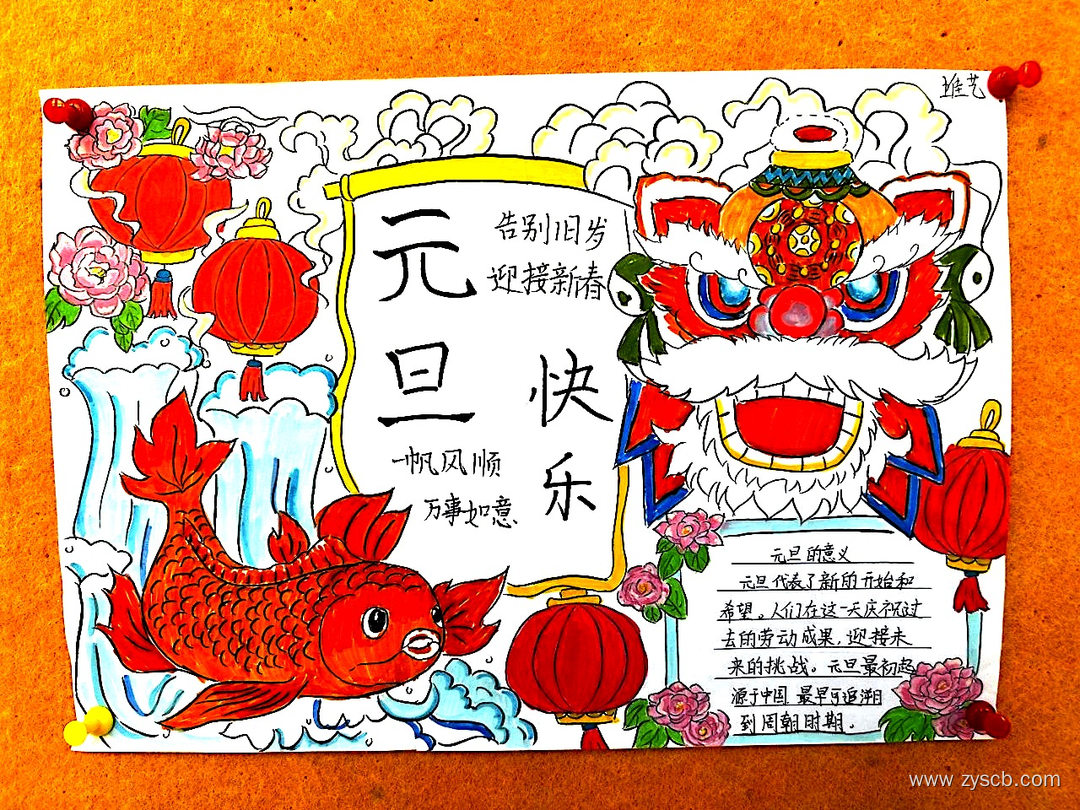 元旦
快乐
告别旧岁
迎接新春
一帆风顺
万事如意
元旦的意义
元旦代表了新的开始和
希望。人们在这一天庆祝过
去的劳动成果,迎接未
来的挑战。元旦最初起
源于中国,最早可追溯
到周朝时期.
www.zyscb.com